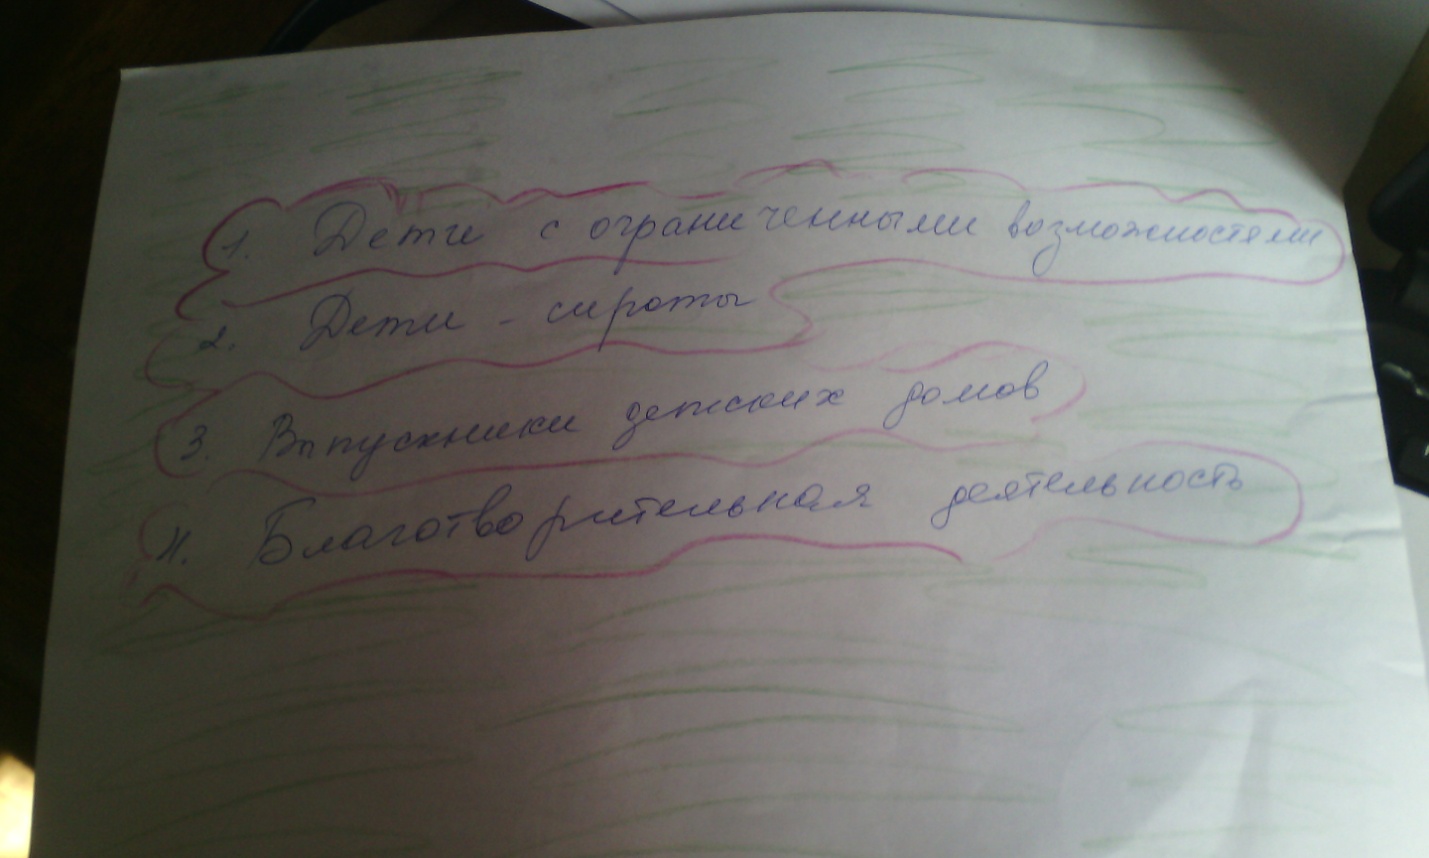 1. Дети с ограниченными возможностями
2. Дети - сироты
3. Выпускники детских домов
4. Благотворительная деятельность